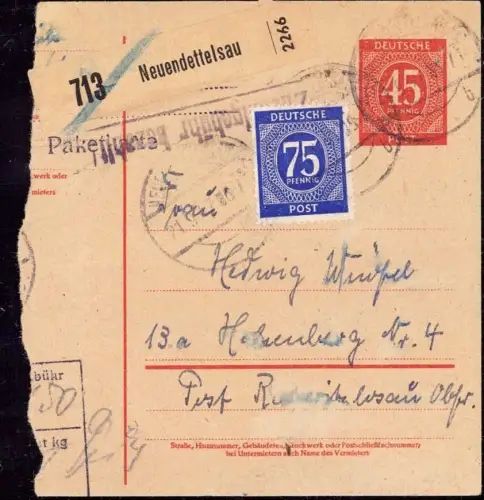 713 Neuendettelsau
2266
DEUTSCHE
45
PFENNIG
Paketkarte
DEUTSCHE
75
PFENNIG
POST
werk oder
mieters
Frau
Hedwig
13a Hohenberg Nr. 4
Post Obfr.
bühr
50
t kg
Straße, Hausnummer, Gebäudeteil, Stockwerk oder Postschließfachnummer;
bei Untermietern auch Name des Vermieters